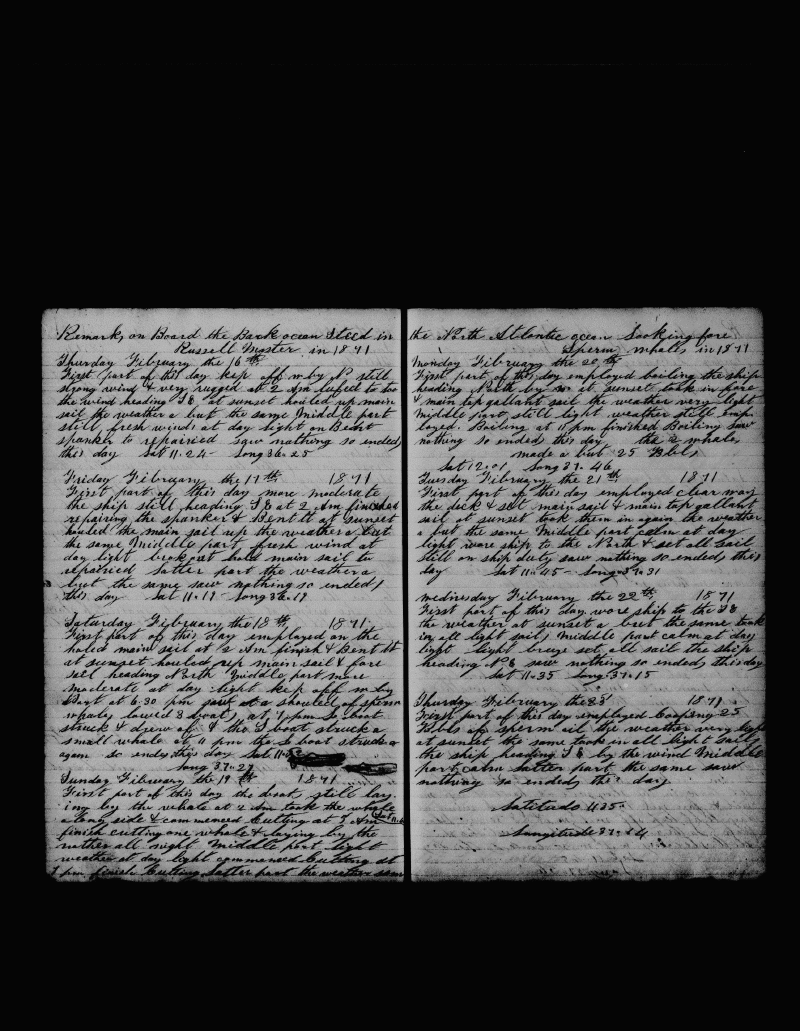 Remarks on Board the Bark ocean Steed in
Russell Master in 1871
Thursday Fibruary the 16th
First part of this day kep off w by N still
strong wind & very rugged at 2 Am lufed to too
the wind heading S E at sunset hauled up main
sail the weather a but the same Middle part
still fresh winds at day light on Bent
spanker to repairied saw nothing so ended
this day Lat 11.24 - Long 36.25
Friday Fibruary the 17th 1871
First part of this day more moderate
the ship still heading S E at 2 Am finished
repairing the spanker & Bent it at sunset
hauled the main sail up the weather a but
the same Middle part fresh wind at
day light broke out main sail to
repairied Latter part the weather a
but the same saw nothing so ended
this day Lat 11.19 - Long 36.19
Saturday Fibruary the 18th 1871
First part of this day employed on the
main sail at 2 Am finish & Bent it
at sunset hauled up main sail & fore
sail heading North Middle part more
moderate at day light kep off w by
at 6.30 pm a shouled of sperm
whales lowerd 3 boats at 7 pm boat
struck & drew & the boat struck a
small whale at 11 pm the boat struck
again so ends this day Lat 11
Long 37.27
Sunday Fibruary the 19th 1871
First part of this day the boats still lay
ing by the whale at 2 Am took the whale
along side & commenced Cutting at Am
finish cutting one whale & laying by the
nother all night Middle part light
weather at day light commenced Cutting at
pm finish Cutting Latter part the weather
the North Atlantic ocean Looking fore
Sperm whales in 1871
Monday Fibruary the 20th
First part of this day employed boiling the ship
heading North by w at sunset took in fore
& main top gallant sail the weather very light
Middle part still light weather still emp
loyed Boiling at 11 pm finished Boiling saw
nothing so ended this day the 2 whales
made a but 25 Bbls
Lat 12.01 Long 37.46
Tuesday Fibruary the 21th 1871
First part of this day employed clear way
the deck & set main sail & main top gallant
sail at sunset took them in again the weather
a but the same Middle part calm at day
light wore ship to the North & set all sail
still on ship duty saw nothing so ended this
day Lat 11.45 - Long 37.31
wednesday Fibruary the 22th 1871
First part of this day wore ship to the SE
the weather at sunset a but the same took
in all light sails Middle part calm at day
light light breze set all sail the ship
heading NE saw nothing so ended this day
Lat 11.35 Long 37.15
Thursday Fibruary the 23 1871
First part of this day employed Coopring 25
Bbls of sperm oil the weather very light
at sunset the same took in all light sails
the ship heading S E by the wind Middle
part calm Latter part the same saw
nothing so ended this day
Latitude 11.25
Longitude 37.14